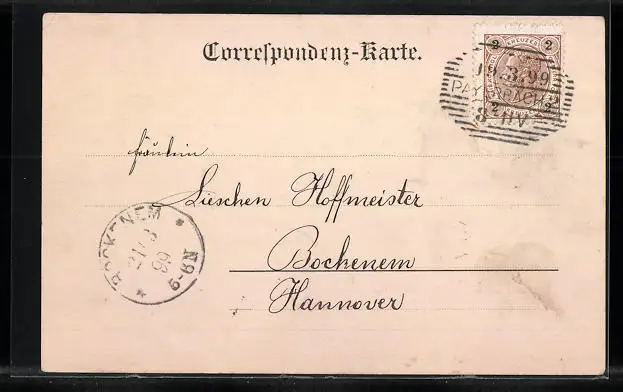 Correspondenz-Karte.
2 KREUZER 2
19.3.99
PAYERBACH
2
Fräulein
Lieschen Hoffmeister
Bockenem
Hannover
BOCKENEM
99
5-6N